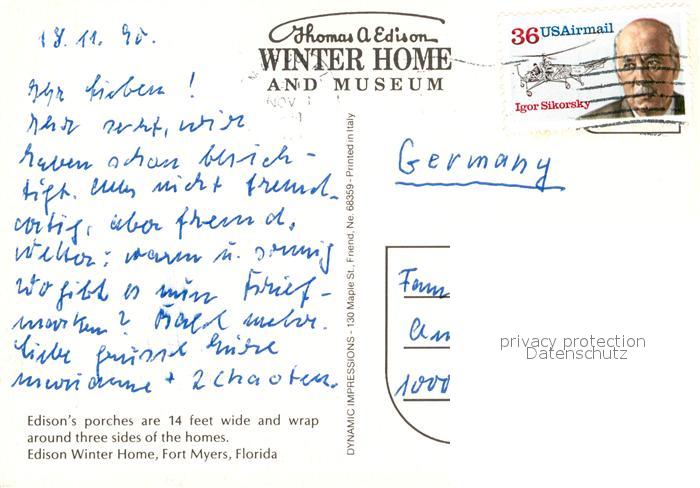 18.11.90.
Ihr Lieben!
Ihr seht, wir
haben schon besich-
tigt. Alles nicht fremd-
artig, aber fremd.
Wetter: warm u. sonnig
Wo gibt es nun Brief-
marken?
Liebe Grüsse Eure
Marianne + 2 Chaoten.
Edison's porches are 14 feet wide and wrap
around three sides of the homes.
Edison Winter Home, Fort Myers, Florida
DYNAMIC IMPRESSIONS - 130 Maple St., Friend, Ne. 68359 - Printed in Italy
Thomas A Edison
WINTER HOME
AND MUSEUM
NOV
36 USAirmail
Igor Sikorsky
Germany
Fam
An
1000
privacy protection
Datenschutz